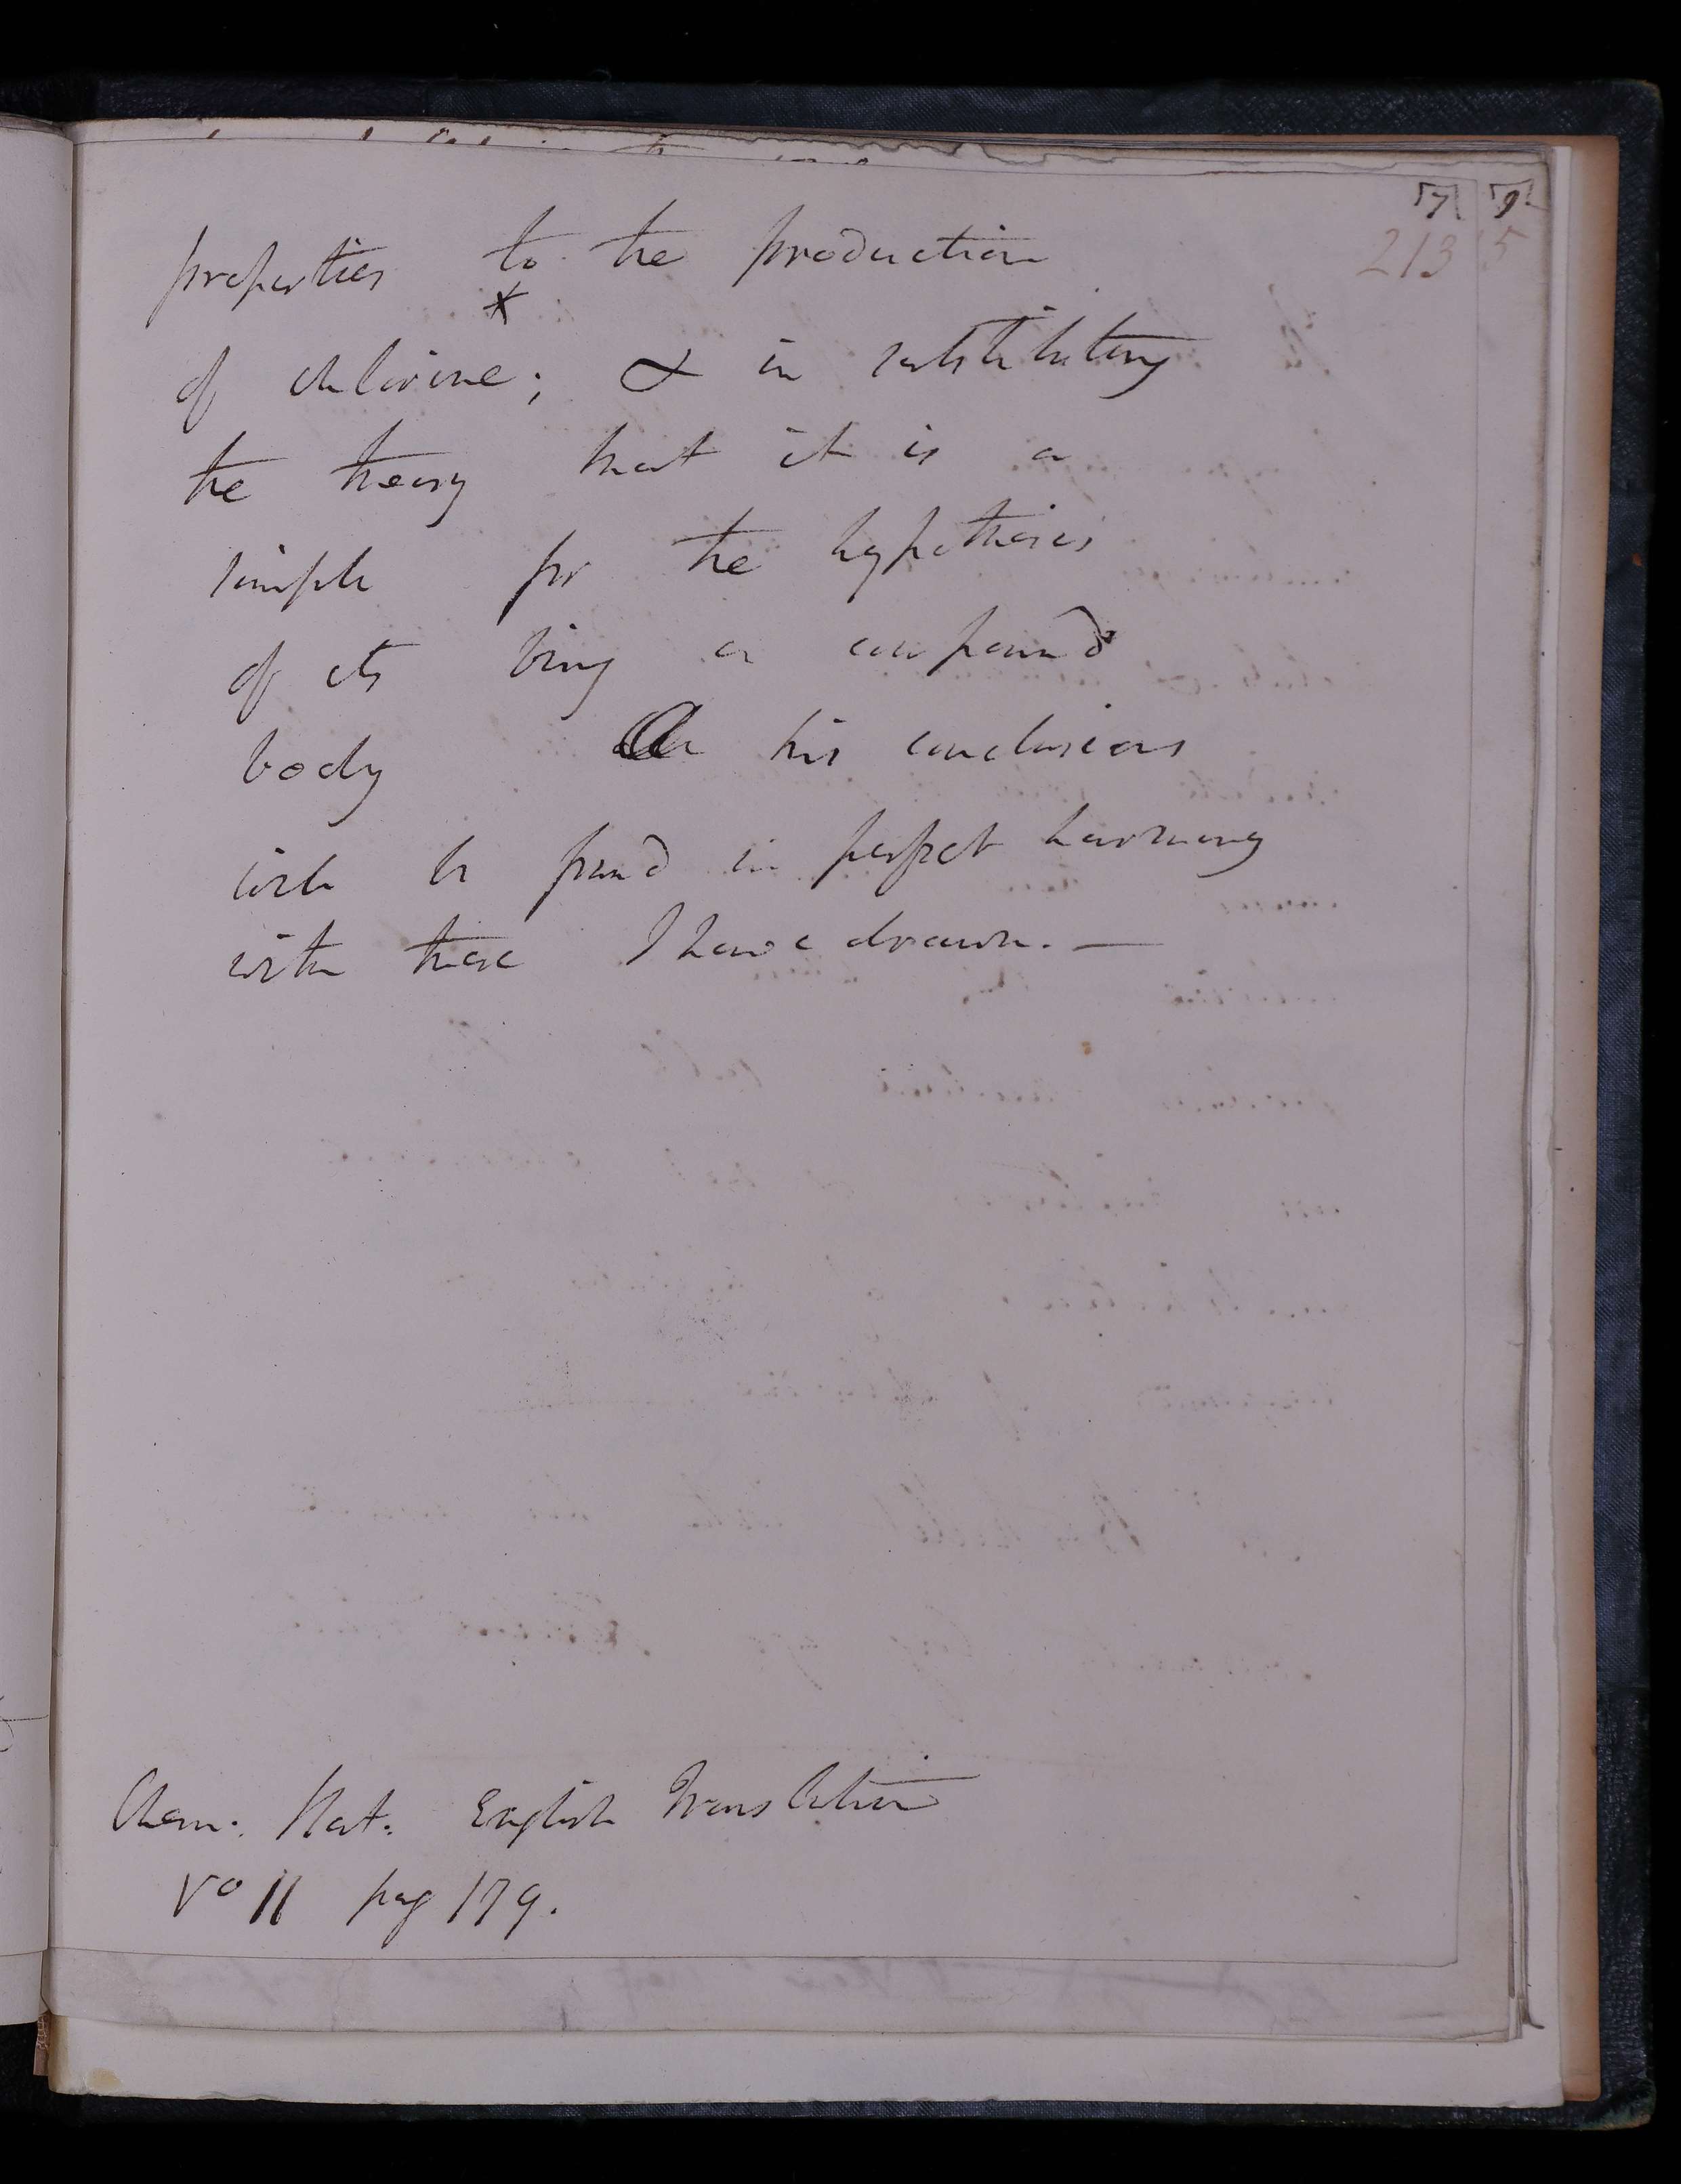 7 9
213 5
properties to the production
x
of chlorine; & in substituting
the theory that it is a
simple for the hypothesis
of its being a compound
body his conclusions
will be found in perfect harmony
with those I have drawn. —
Chem. Stat. English Translation
Vo II pag 179.